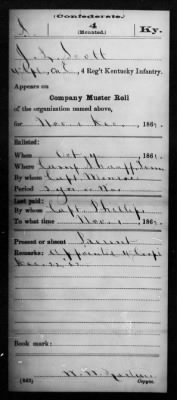 (Confederate.)
S 4 Ky.
(Mounted.)
J. J. Scott
Co. 4 Reg't Kentucky Infantry.
Appears on
Company Muster Roll
of the organization named above,
for Nov. & Dec., 186
Enlisted:
When Oct 19, 186
Where Camp
By whom Capt
Period 3 yrs or War
Last paid:
By whom Capt Phillips
To what time Nov. 1, 186
Present or absent Present
Remarks: Appointed 4 Corp
Dec. 22, 62
Book mark:
W. W.
(642) Copyist.